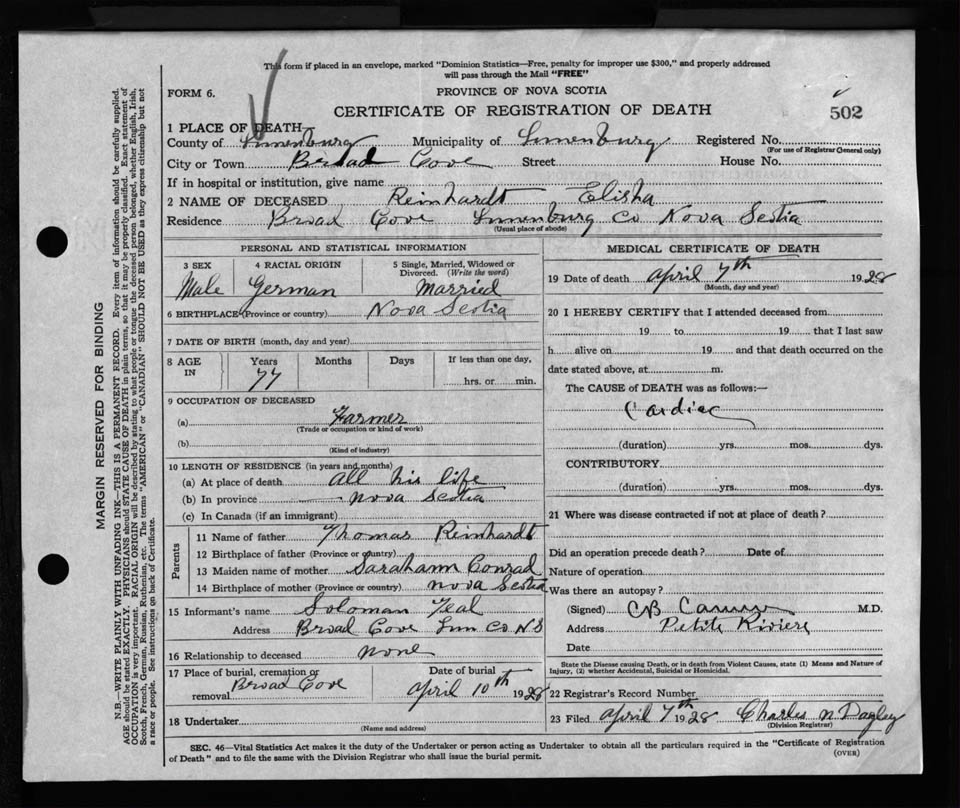 This form if placed in an envelope, marked "Dominion Statistics—Free, penalty for improper use $300," and properly addressed
will pass through the Mail "FREE"
FORM 6.
PROVINCE OF NOVA SCOTIA
CERTIFICATE OF REGISTRATION OF DEATH
502
1 PLACE OF DEATH
County of Lunenburg Municipality of Lunenburg Registered No.
(For use of Registrar General only)
City or Town Broad Cove Street House No.
If in hospital or institution, give name
2 NAME OF DECEASED Reinhardt Elisha
Residence Broad Cove Lunenburg Co Nova Scotia
(Usual place of abode)
PERSONAL AND STATISTICAL INFORMATION
3 SEX 4 RACIAL ORIGIN 5 Single, Married, Widowed or Divorced. (Write the word)
Male German Married
6 BIRTHPLACE (Province or country) Nova Scotia
7 DATE OF BIRTH (month, day and year)
8 AGE IN Years Months Days If less than one day,
77 hrs. or min.
9 OCCUPATION OF DECEASED
(a) Farmer
(Trade or occupation or kind of work)
(b)
(Kind of industry)
10 LENGTH OF RESIDENCE (in years and months)
(a) At place of death all his life
(b) In province Nova Scotia
(c) In Canada (if an immigrant)
Parents
11 Name of father Thomas Reinhardt
12 Birthplace of father (Province or country)
13 Maiden name of mother Sarahann Conrad
14 Birthplace of mother (Province or country) Nova Scotia
15 Informant's name Soloman Teal
Address Broad Cove Lun Co N S
16 Relationship to deceased none
17 Place of burial, cremation or removal Broad Cove
Date of burial April 10th 1928
18 Undertaker
(Name and address)
MEDICAL CERTIFICATE OF DEATH
19 Date of death April 7th 1928
(Month, day and year)
20 I HEREBY CERTIFY that I attended deceased from
19 to 19 that I last saw
h alive on 19 and that death occurred on the
date stated above, at m.
The CAUSE of DEATH was as follows:—
Cardiac
(duration) yrs. mos. dys.
CONTRIBUTORY
(duration) yrs. mos. dys.
21 Where was disease contracted if not at place of death?
Did an operation precede death? Date of
Nature of operation
Was there an autopsy?
(Signed) CB M.D.
Address Petite Riviere
Date
State the Disease causing Death, or in death from Violent Causes, state (1) Means and Nature of
Injury, (2) whether Accidental, Suicidal or Homicidal.
22 Registrar's Record Number
23 Filed April 7th 1928 Charles N Dagley
(Division Registrar)
SEC. 46—Vital Statistics Act makes it the duty of the Undertaker or person acting as Undertaker to obtain all the particulars required in the "Certificate of Registration
of Death" and to file the same with the Division Registrar who shall issue the burial permit.
(OVER)
MARGIN RESERVED FOR BINDING
N.B.—WRITE PLAINLY WITH UNFADING INK—THIS IS A PERMANENT RECORD. Every item of information should be carefully supplied.
AGE should be stated EXACTLY. PHYSICIANS should STATE CAUSE OF DEATH in plain terms, so that it may be properly classified. Exact statement of
OCCUPATION is very important. RACIAL ORIGIN will be described by stating to what people or tongue the deceased person belonged, whether English, Irish,
Scotch, French, German, Russian, Ruthenian, etc. The terms "AMERICAN" or "CANADIAN" SHOULD NOT BE USED as they express citizenship but not
a race or people. See instructions on back of Certificate.